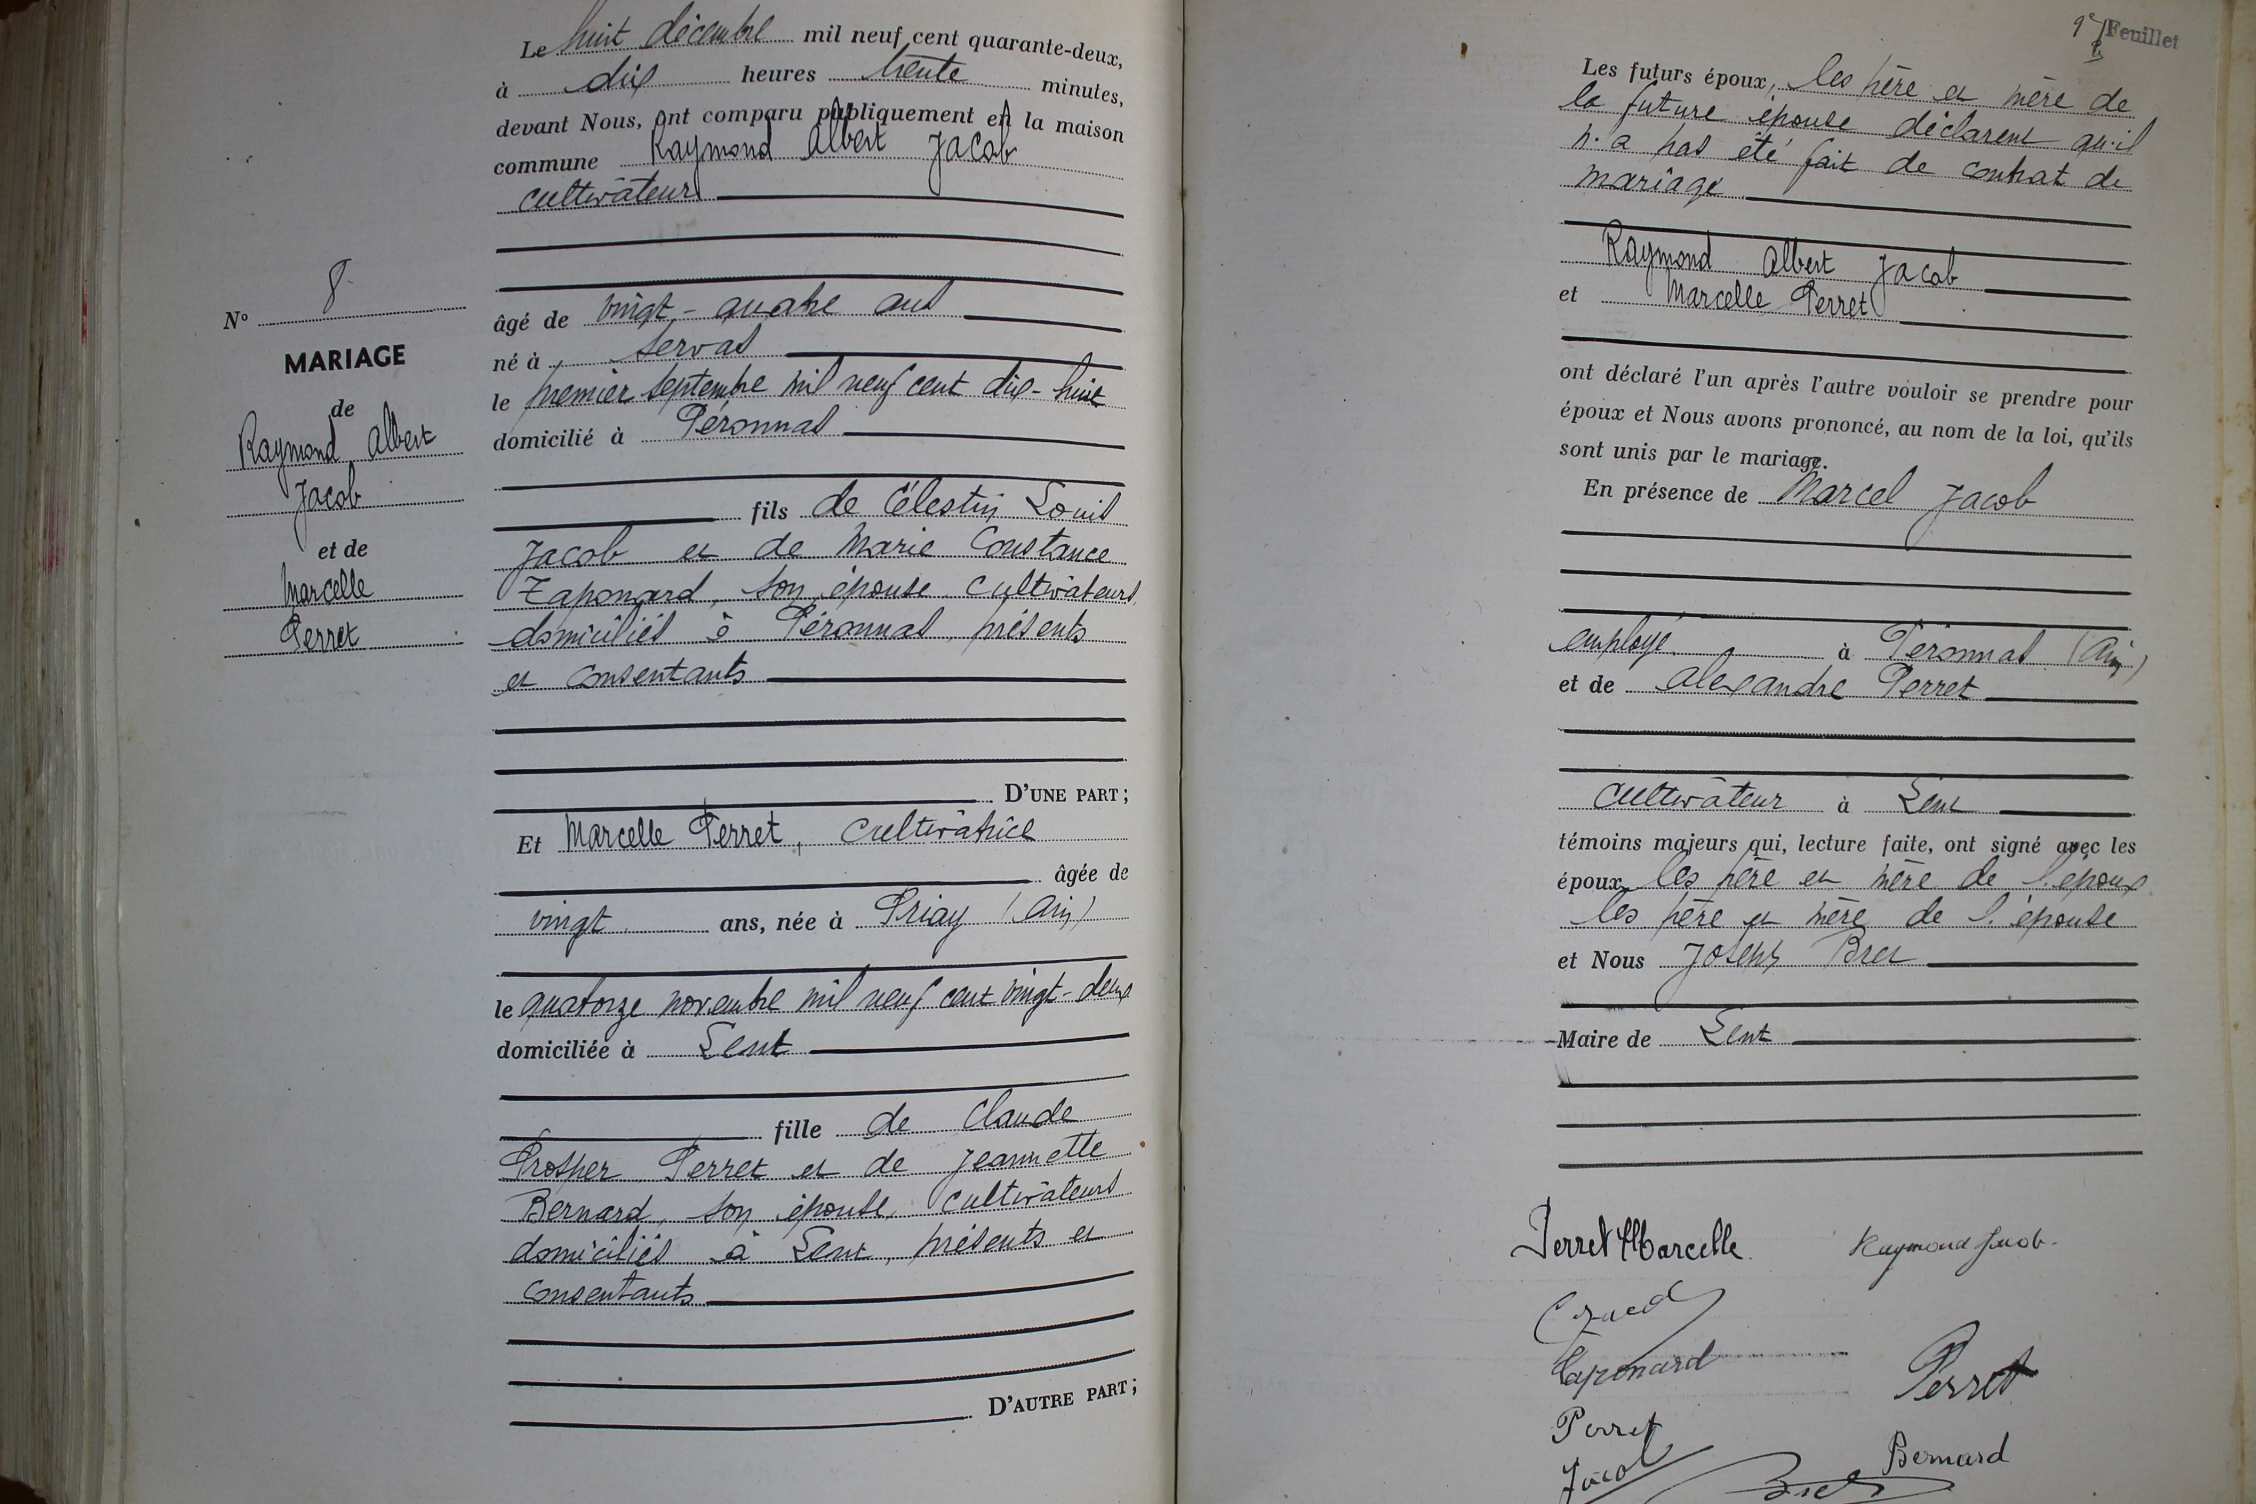 Le huit décembre mil neuf cent quarante-deux,
à dix heures trente minutes,
devant Nous, ont comparu publiquement en la maison
commune Raymond Albert Jacob
cultivateur
âgé de vingt-quatre ans
né à Servas
le premier septembre mil neuf cent dix-huit
domicilié à Péronnas
fils de Célestin Louis
Jacob et de Marie Constance
Taponard, son épouse cultivateurs,
domiciliés à Péronnas, présents
et consentants
D'UNE PART;
Et Marcelle Perret, cultivatrice
âgée de
vingt ans, née à Priay (Ain)
le quatorze novembre mil neuf cent vingt-deux
domiciliée à Lent
fille de Claude
Prosper Perret et de Jeannette
Bernard, son épouse, cultivateurs
domiciliés à Lent, présents et
consentants
D'AUTRE PART;
N° 8
MARIAGE
de
Raymond Albert
Jacob
et de
Marcelle
Perret
9e Feuillet
Les futurs époux, les père et mère de
la future épouse déclarent qu'il
n'a pas été fait de contrat de
mariage
Raymond Albert Jacob
et Marcelle Perret
ont déclaré l'un après l'autre vouloir se prendre pour
époux et Nous avons prononcé, au nom de la loi, qu'ils
sont unis par le mariage.
En présence de Marcel Jacob
employé à Péronnas (Ain)
et de Alexandre Perret
cultivateur à Lent
témoins majeurs qui, lecture faite, ont signé avec les
époux les père et mère de l'époux
les père et mère de l'épouse
et Nous Joseph Bret
Maire de Lent
Perret Marcelle Raymond Jacob
Taponard
Perret
Perret
Bernard
Jacob